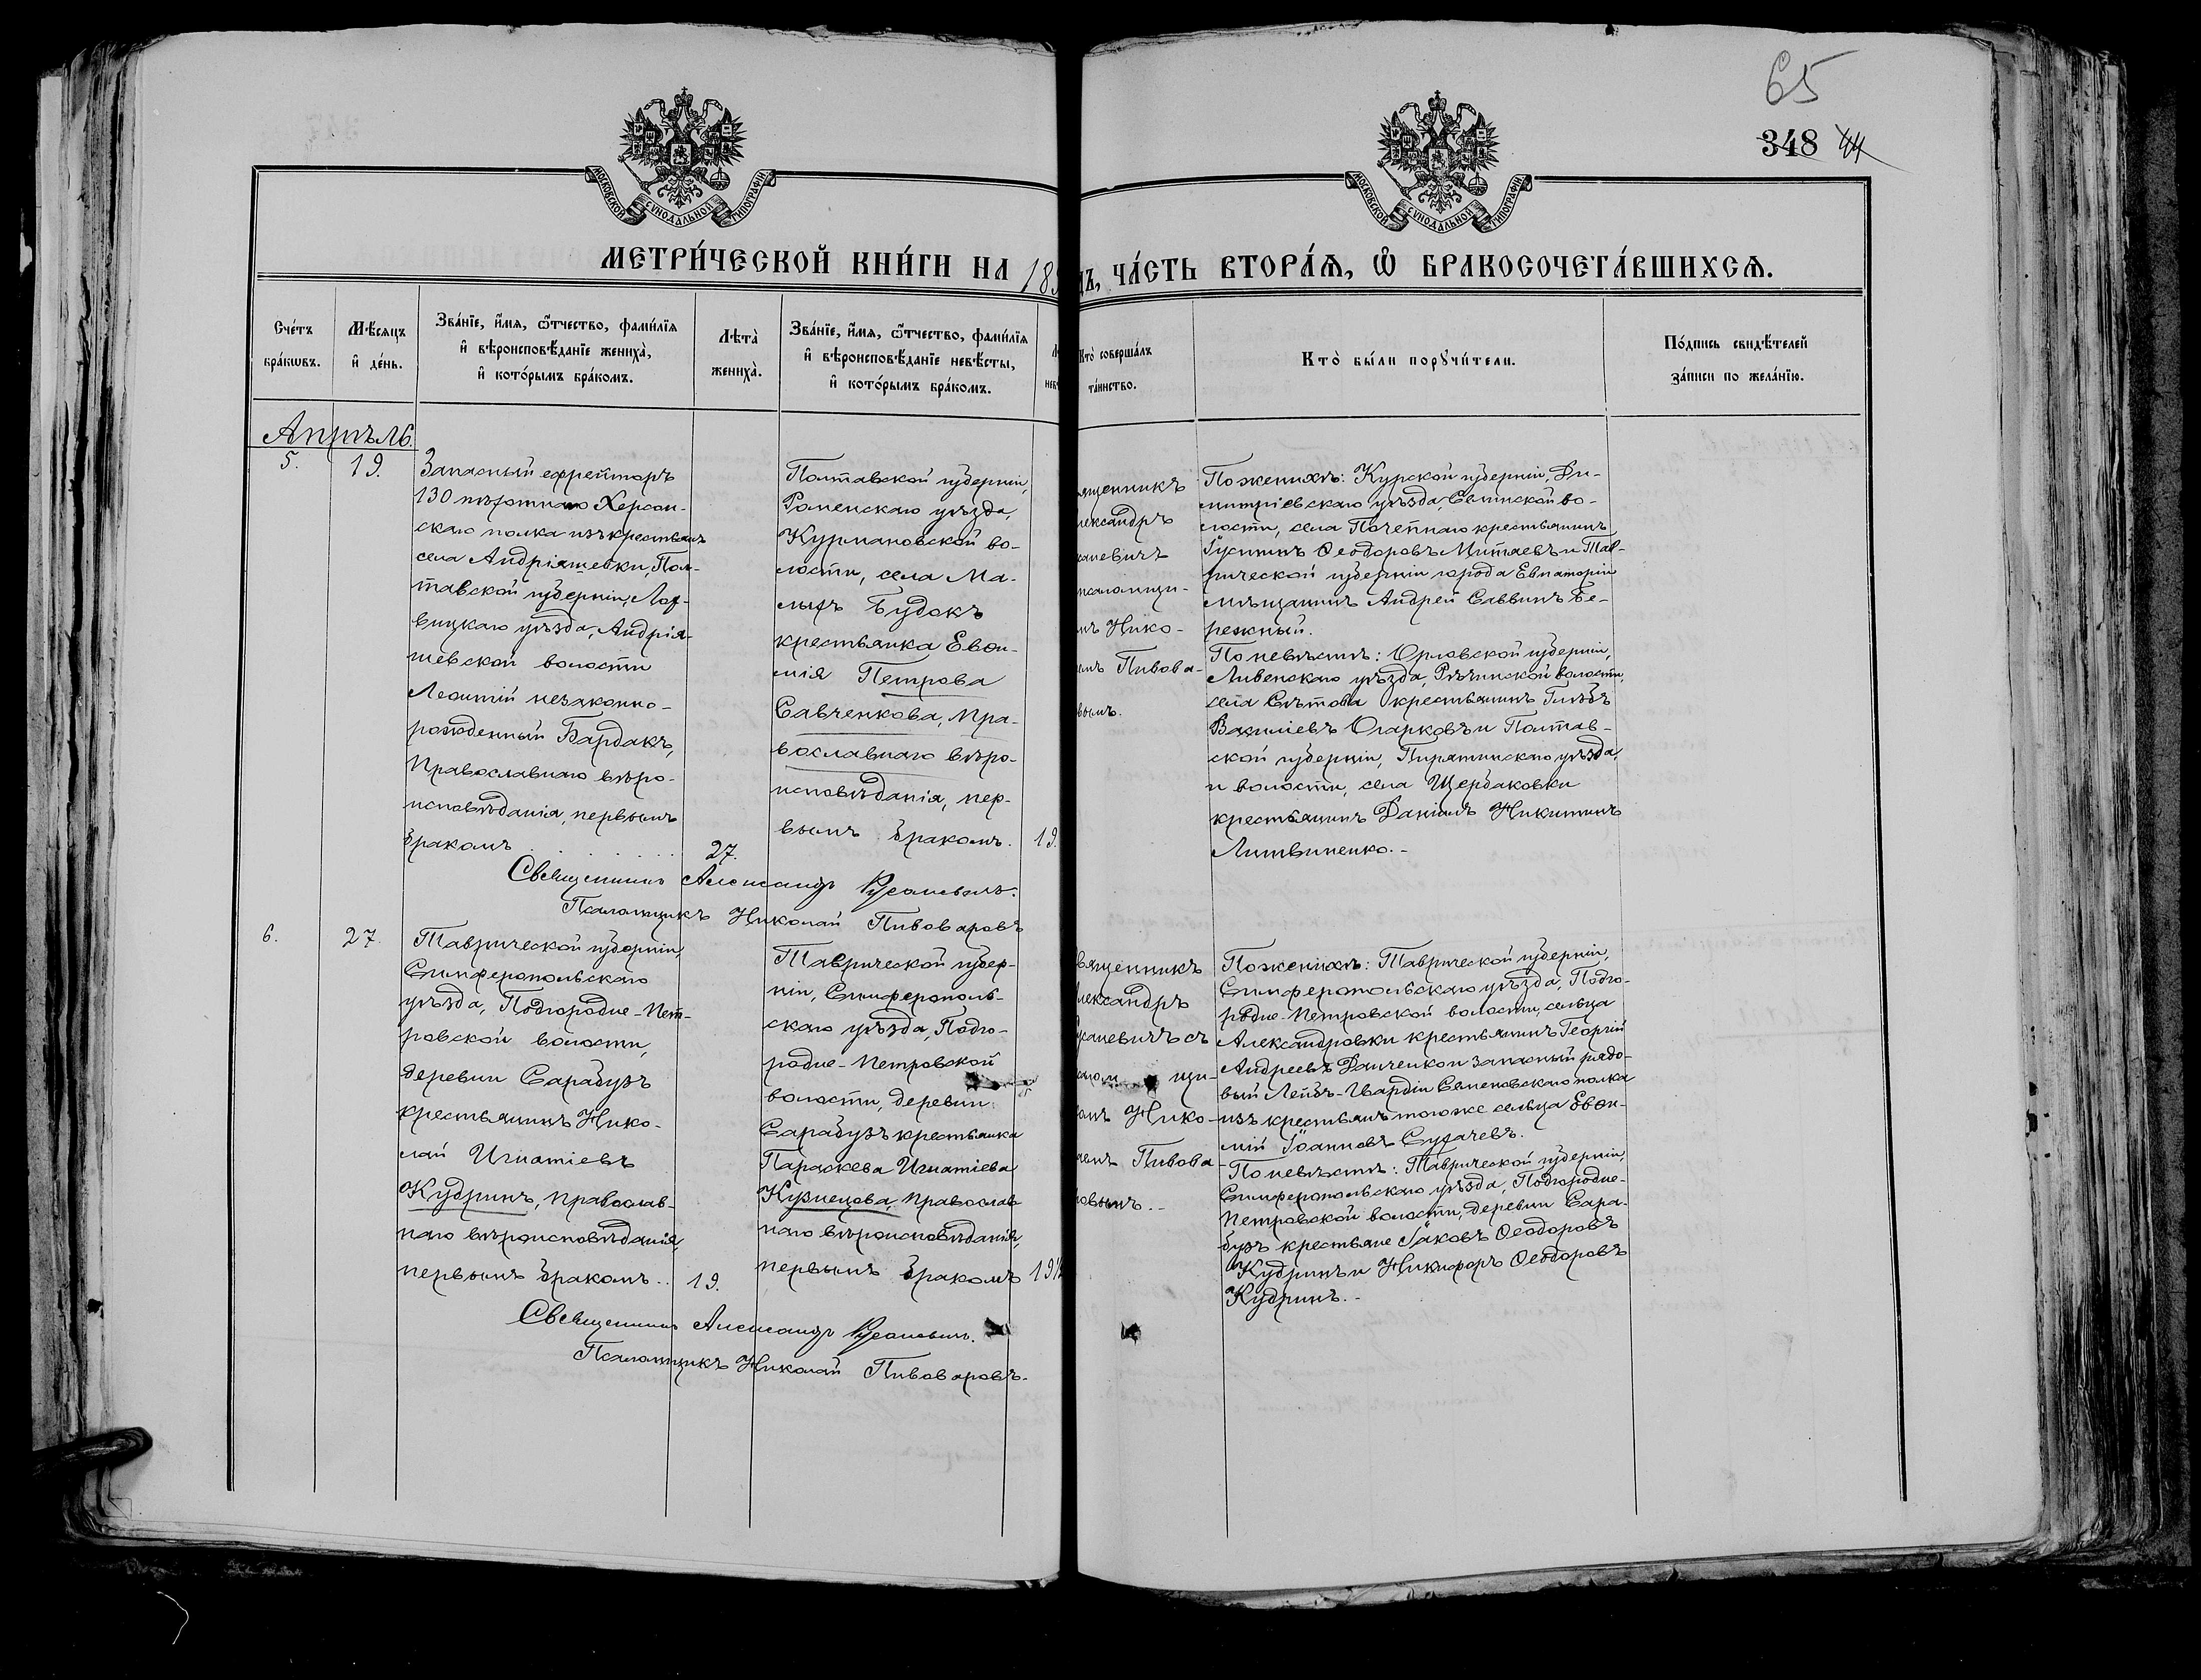 65
348 44
МОСКОВСКОЙ СѴНОДАЛЬНОЙ ТИПОГРАФІИ
МОСКОВСКОЙ СѴНОДАЛЬНОЙ ТИПОГРАФІИ
МЕТРИ́ЧЕСКОЙ КНИ́ГИ НА 189
ДЪ, ЧА́СТЬ ВТОРА́Ѧ, Ѽ БРАКОСОЧЕТА́ВШИХСѦ.
Сче́тъ
бра́кѡвъ.
Мѣ́сяцъ
и҆ де́нь.
Зва́нїе, и҆́мѧ, ѻ҆́тчество, фами́лїѧ
и҆ вѣроисповѣ́данїе жениха̀,
и҆ кото́рымъ бра́комъ.
Лѣта̀
жениха̀.
Зва́нїе, и҆́мѧ, ѻ҆́тчество, фами́лїѧ
и҆ вѣроисповѣ́данїе невѣ́сты,
и҆ кото́рымъ бра́комъ.
Кто̀ соверша́лъ
та́инство.
Кто̀ бы́ли порꙋчи́тели.
По́дпись свидѣ́телей
за́писи по жела́нїю.
Апрѣль.
5.
19.
Запасный ефрейторъ
130 пѣхотнаго Херсон-
скаго полка изъ крестьянъ
села Андріяшевки, Пол-
тавской губерніи, Лох-
вицкаго уѣзда, Андрія-
шевской волости
Леонтій незаконно-
рожденный Бардакъ,
Православнаго вѣро-
исповѣданія, первымъ
бракомъ
27.
Полтавской губерніи,
Роменскаго уѣзда,
Курмановской во-
лости, села Ма-
лыхъ Будокъ
крестьянка Евѳи-
мія Петрова
Савченкова, пра-
вославнаго вѣро-
исповѣданія, пер-
вымъ бракомъ.
19.
ященникъ
лександръ
саневичъ
псаломщи-
мъ Нико-
емъ Пивова-
вымъ.
По женихѣ: Курской губерніи, Ди-
митріевскаго уѣзда, во-
лости, села крестьянинъ
Іустинъ Ѳеодоровъ Митаевъ и Тав-
рической губерніи города Евпаторіи
мѣщанинъ Андрей Саввинъ Бе-
режный.
По невѣстѣ: Орловской губерніи,
Ливенскаго уѣзда, Рѣчинской волости,
села крестьянинъ Глѣбъ
Василіевъ Огарковъ и Полтав-
ской губерніи, Пирятинскаго уѣзда,
и волости, села Щербаковки
крестьянинъ Даніилъ Никитинъ
Литвиненко.-
Священникъ Александръ Русаневичъ.
Псаломщикъ Николай Пивоваровъ
6.
27.
Таврической губерніи,
Симферопольскаго
уѣзда, Подгородне-Пет-
ровской волости,
деревни Сарабузъ
крестьянинъ Нико-
лай Игнатіевъ
Кудринъ, православ-
наго вѣроисповѣданія,
первымъ бракомъ..
19.
Таврической губер-
ніи, Симферополь-
скаго уѣзда, Подго-
родне-Петровской
волости, деревни
Сарабузъ крестьянка
Параскева Игнатіева
Кузнецова, православ
наго вѣроисповѣданія,
первымъ бракомъ
19½
вященникъ
лександръ
усаневичъ съ
салом щи-
омъ Нико-
аемъ Пивова-
ровымъ.-
По женихѣ: Таврической губерніи,
Симферопольскаго уѣзда, Подго-
родне-Петровской волости, сельца
Александровки крестьянинъ Георгій
Андреевъ Данченко и запасный рядо-
вый Лейбъ-Гвардіи Семеновскаго полка
изъ крестьянъ тогоже сельца Евѳи-
мій Іоанновъ Сухачевъ.
По невѣстѣ: Таврической губерніи,
Симферопольскаго уѣзда, Подгородне-
Петровской волости, деревни Сара-
бузъ крестьяне Іаковъ Ѳеодоровъ
Кудринъ и Никифоръ Ѳеодоровъ
Кудринъ.-
Священникъ Александръ Русаневичъ.
Псаломщикъ Николай Пивоваровъ.